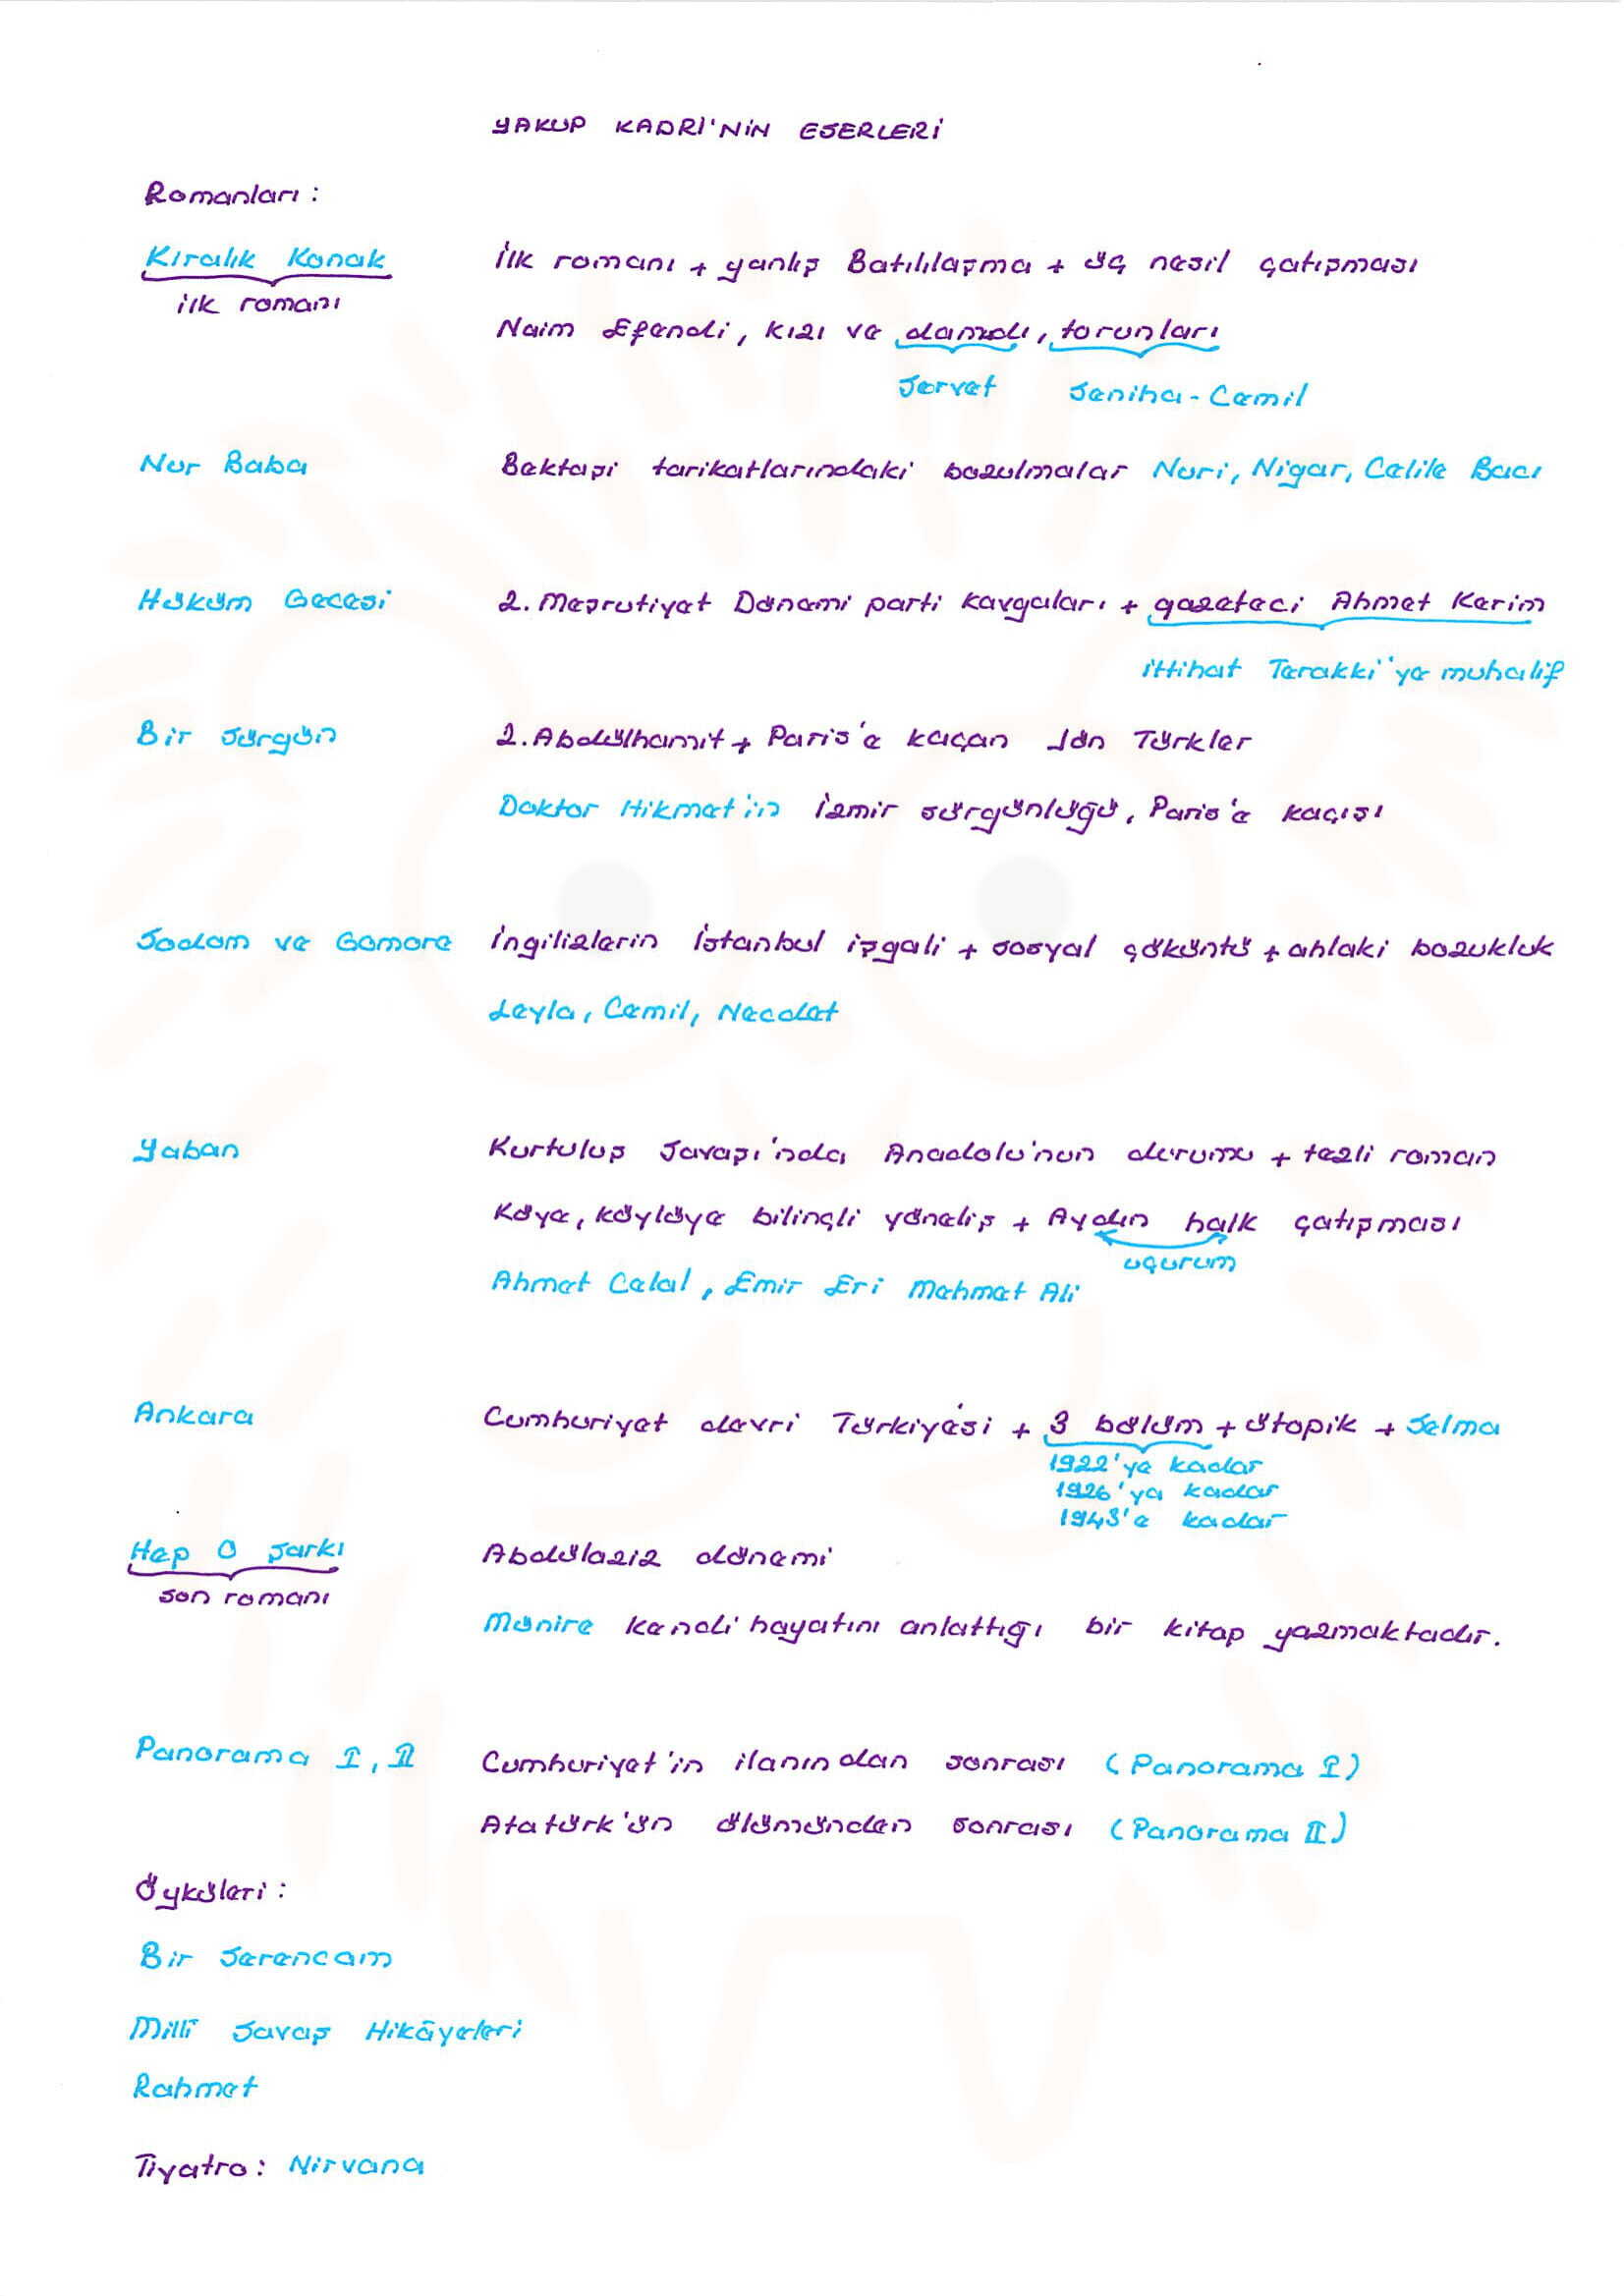 YAKUP KADRİ'NİN ESERLERİ
Romanları:
Kiralık Konak İlk romanı + yanlış Batılılaşma + üç nesil çatışması
ilk romanı
Naim Efendi, kızı ve damadı, torunları
Servet Seniha-Cemil
Nur Baba Bektaşi tarikatlarındaki bozulmalar Nuri, Nigar, Celile Bacı
Hüküm Gecesi 2. Meşrutiyet Dönemi parti kavgaları + gazeteci Ahmet Kerim
ittihat Terakki'ye muhalif
Bir Sürgün 2. Abdülhamit + Paris'e kaçan Jön Türkler
Doktor Hikmet'in İzmir sürgünlüğü, Paris'e kaçışı
Sodom ve Gomore İngilizlerin İstanbul işgali + sosyal çöküntü + ahlaki bozukluk
Leyla, Cemil, Necdet
Yaban Kurtuluş Savaşı'nda Anadolu'nun durumu + tezli roman
Köye, köylüye bilinçli yöneliş + Aydın halk çatışması
uçurum
Ahmet Celal, Emir Eri Mehmet Ali
Ankara Cumhuriyet devri Türkiyesi + 3 bölüm + ütopik + Selma
1922'ye kadar
1926'ya kadar
1943'e kadar
Hep O Şarkı Abdülaziz dönemi
son romanı
Münire kendi hayatını anlattığı bir kitap yazmaktadır.
Panorama I, II Cumhuriyet'in ilanından sonrası (Panorama I)
Atatürk'ün ölümünden sonrası (Panorama II)
Öyküleri:
Bir Serencam
Millî Savaş Hikâyeleri
Rahmet
Tiyatro: Nirvana